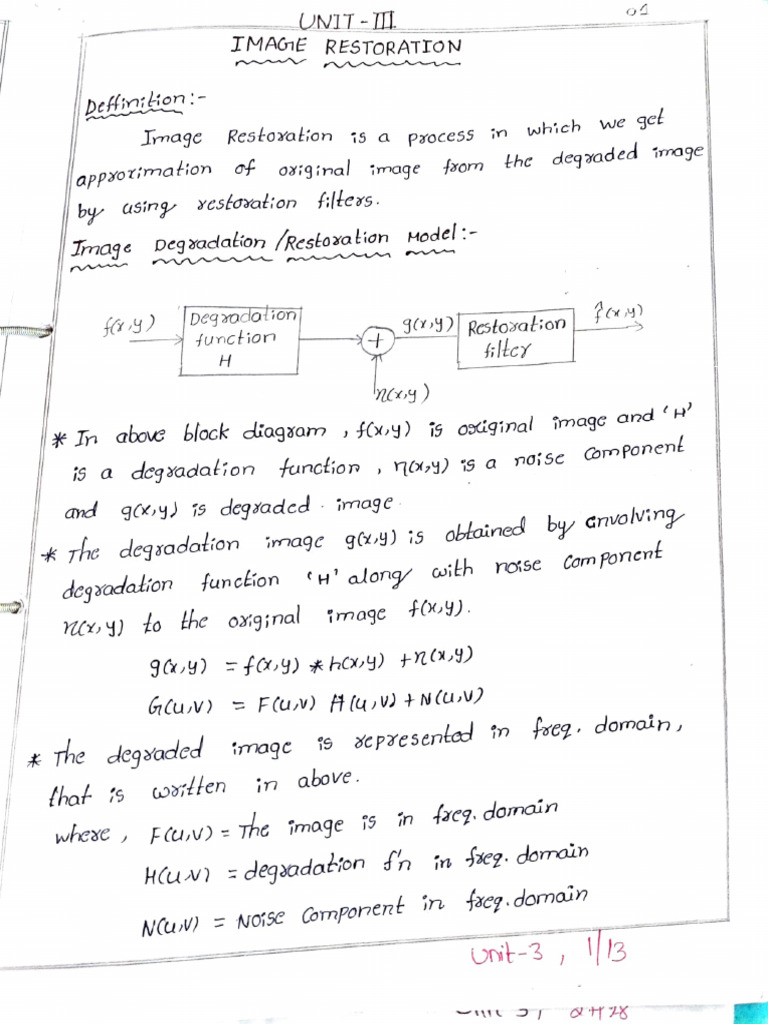 UNIT - III.
01
IMAGE RESTORATION
Deffinition :-
Image Restoration is a process in which we get
approximation of original image from the degraded image
by using restoration filters.
Image Degradation / Restoration Model :-
f(x,y)
Degradation
function
H
+
η(x,y)
g(x,y)
Restoration
filter
f̂(x,y)
* In above block diagram , f(x,y) is original image and 'H'
is a degradation function , η(x,y) is a noise component
and g(x,y) is degraded image.
* The degradation image g(x,y) is obtained by convolving
degradation function 'H' along with noise component
η(x,y) to the original image f(x,y).
g(x,y) = f(x,y) * h(x,y) + η(x,y)
G(u,v) = F(u,v) H(u,v) + N(u,v)
* The degraded image is represented in freq. domain,
that is written in above.
where , F(u,v) = The image is in freq. domain
H(u,v) = degradation f'n in freq. domain
N(u,v) = Noise component in freq. domain
Unit-3 , 1/13